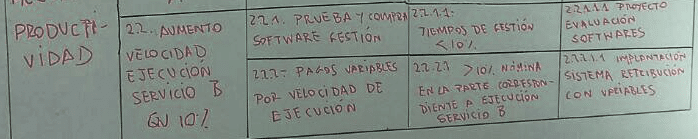 PRODUCTI-
VIDAD
2.2. AUMENTO
VELOCIDAD
EJECUCIÓN
SERVICIO B
EN 10%
2.2.1. PRUEBA Y COMPRA
SOFTWARE GESTIÓN
2.2.1.1:
TIEMPOS DE GESTIÓN
<10%
2.2.1.1.1 PROYECTO
EVALUACIÓN
SOFTWARES
2.2.2- PAGOS VARIABLES
POR VELOCIDAD DE
EJECUCIÓN
2.2.2.1 >10% NÓMINA
EN LA PARTE CORRESPON-
DIENTE A EJECUCIÓN
SERVICIO B
2.2.2.1.1 IMPLANTACIÓN
SISTEMA RETRIBUCIÓN
CON VARIABLES